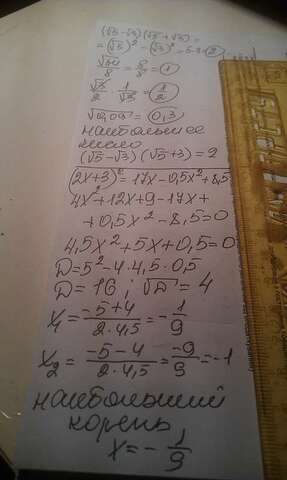 (√5-√3)(√5+√3)=
=(√5)²-(√3)²=5-3=2
√64/8=8/8=1
√3/2·1/√3=1/2
√0,09=0,3
наибольшее
число
(√5-√3)(√5+3)=2
(2x+3)²=17x-0,5x²+8,5
4x²+12x+9-17x+
+0,5x²-8,5=0
4,5x²+5x+0,5=0
D=5²-4·4,5·0,5
D=16; √D=4
x₁=(-5+4)/(2·4,5)=-1/9
x₂=(-5-4)/(2·4,5)=-9/9=-1
наибольший
корень
x=-1/9